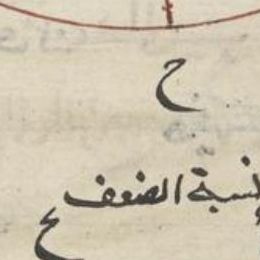 ح
نسبة الضعف
ع